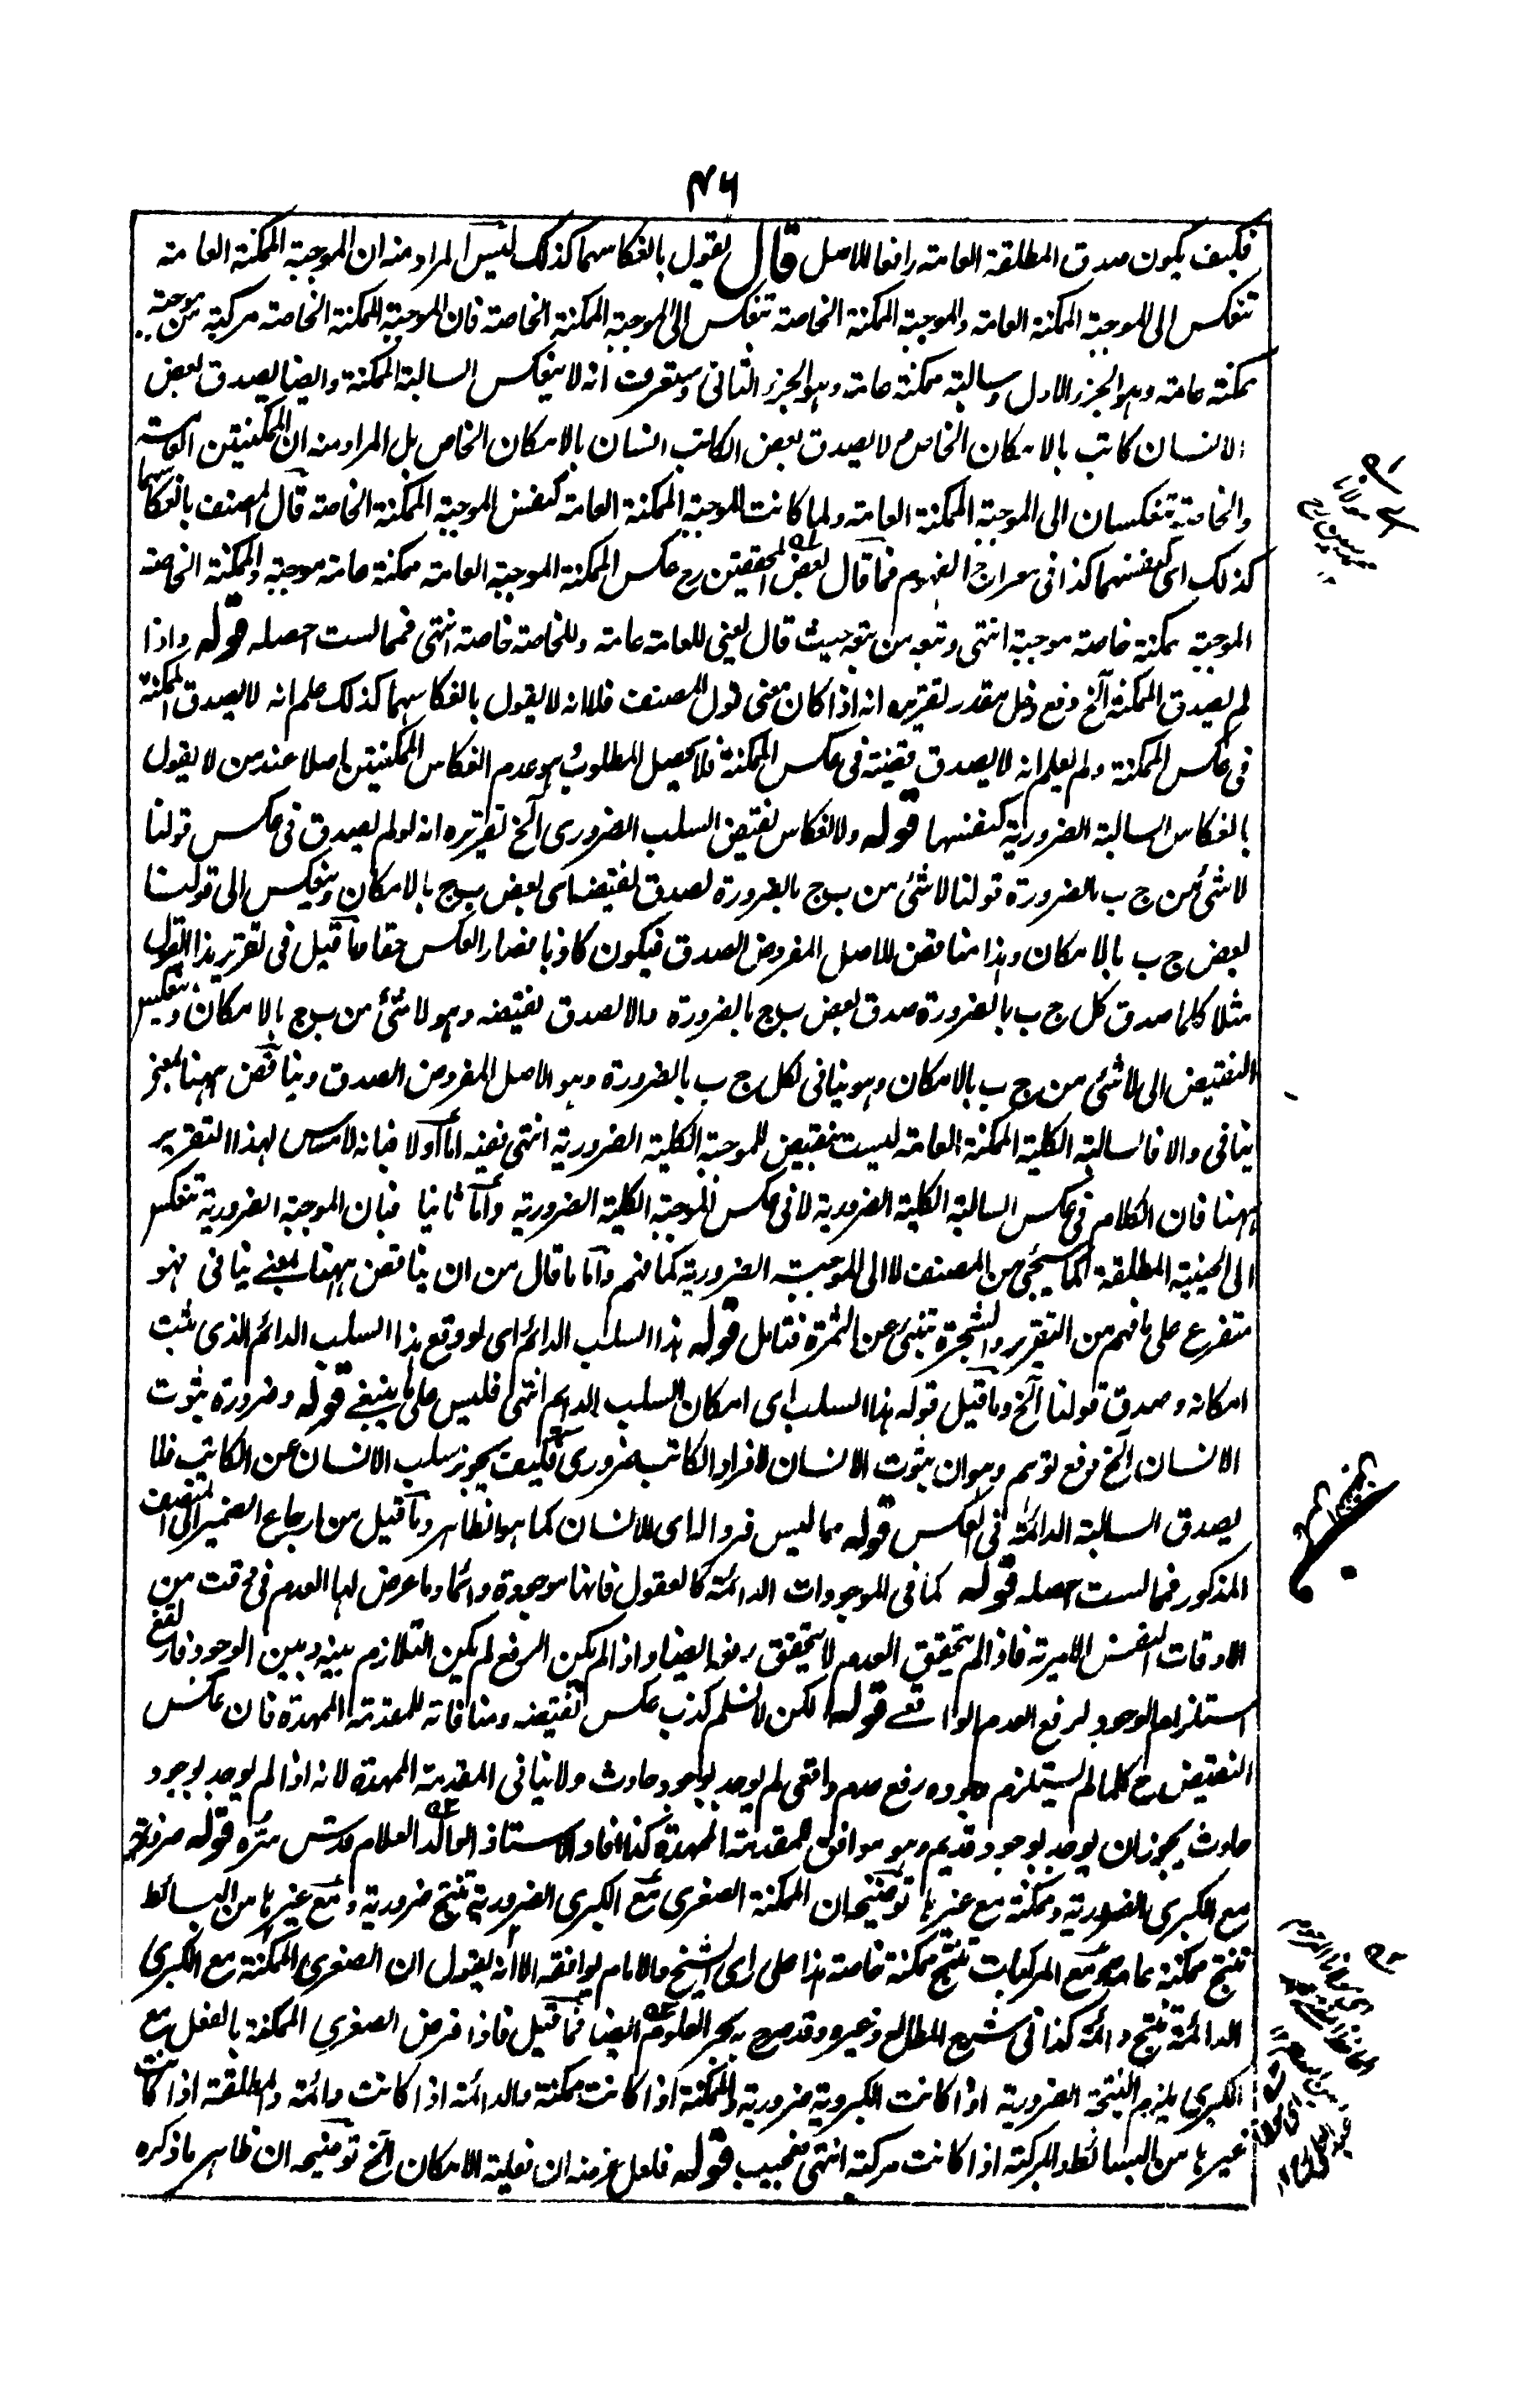 ٤٦
فكيف يكون صدق المطلقة العامة رافعا للاصل قال يقول بانعكاسهما كذلك ليس المراد منه ان الموجبة الممكنة العامة
تنعكس الى الموجبة الممكنة العامة والموجبة الممكنة الخاصة تنعكس الى الموجبة الممكنة الخاصة فان الموجبة الممكنة الخاصة مركبة من موجبة
ممكنة عامة وهو الجزء الاول وسالبة ممكنة عامة وهو الجزء الثانى وستعرف انه لا ينعكس السالبة الممكنة وايضا يصدق بعض
الانسان كاتب بالامكان الخاص م لا يصدق بعض الكاتب انسان بالامكان الخاص بل المراد منه ان الممكنتين العامة
والخاصة تنعكسان الى الموجبة الممكنة العامة ولما كانت الموجبة الممكنة العامة كنفس الموجبة الممكنة الخاصة قال المصنف بانعكاسهما
كذلك اى كنفسهما كذا فى معراج الفهوم فما قال بعض المحققين رح عكس الممكنة الموجبة العامة ممكنة عامة موجبة والممكنة الخاصة
الموجبة ممكنة خاصة موجبة انتهى وتبعه من تبعه حيث قال يعنى للعامة عامة وللخاصة خاصة انتهى فمما لست احصله قوله واذا
لم يصدق الممكنة الخ دفع دخل مقدر تقريره انه اذا كان معنى قول المصنف فلانه لا يقول بانعكاسهما كذلك علم انه لا يصدق الممكنة
فى عكس الممكنة ولم يعلم انه لا يصدق قضية فى عكس الممكنة فلا يحصل المطلوب وهو عدم انعكاس الممكنتين اصلا عند من لا يقول
بانعكاس السالبة الضرورية كنفسها قوله ولانعكاس نقيض السلب الضرورى الخ تقريره انه لو لم يصدق فى عكس قولنا
لا شئ من ج ب بالضرورة قولنا لا شئ من ب ج بالضرورة لصدق نقيضه اى بعض ب ج بالامكان وينعكس الى قولنا
بعض ج ب بالامكان وهذا مناقض للاصل المفروض الصدق فيكون كاذبا فصار العكس حقا فما قيل فى تقرير هذا القول
مثلا كلما صدق كل ج ب بالضرورة صدق بعض ب ج بالضرورة والا لصدق نقيضه وهو لا شئ من ب ج بالامكان وينعكس
النقيض الى لا شئ من ج ب بالامكان وهو ينافى لكل ج ب بالضرورة وهو الاصل المفروض الصدق ويناقض ههنا بمعنى
ينافى والا فالسالبة الكلية الممكنة العامة ليست بنقيض للموجبة الكلية الضرورية انتهى ففيه اما اولا فبانه لا مساس لهذا التقرير
ههنا فان الكلام فى عكس السالبة الكلية الضرورية لا فى عكس الموجبة الكلية الضرورية واما ثانيا فبان الموجبة الضرورية تنعكس
الى الحينية المطلقة كما سيجئ من المصنف لا الى الموجبة الضرورية كما فهم واما ما قال من ان يناقض ههنا بمعنى ينافى فهو
متفرع على ما فهم من التقرير والشجرة تنبئ عن الثمرة فتامل قوله هذا السلب الدائم اى لو وقع هذا السلب الدائم الذى ثبت
امكانه وصدق قولنا الخ وما قيل قوله هذا السلب اى امكان السلب الدائم انتهى فليس على ما ينبغى قوله وضرورة ثبوت
الانسان الخ دفع توهم وهو ان ثبوت الانسان لافراد الكاتب ضرورى فكيف يجوز سلب الانسان عن الكاتب فلا
يصدق السالبة الدائمة فى العكس قوله مما ليس فردا له اى للانسان كما هو الظاهر وما قيل من ارجاع الضمير الى المنتصف
المذكور فمما لست احصله قوله كما فى الموجودات الدائمة كالعقول فانها موجودة دائما وما عرض لها العدم فى وقت من
الاوقات النفس الامرية فاذا لم يتحقق العدم لا يتحقق رفعه ايضا واذا لم يكن الرفع لم يكن التلازم بينه وبين الوجود فارتفع
استلزام الوجود لرفع العدم الواقعى قوله لكن لا نسلم كذب عكس نقيضه ومنافاته للمقدمة الممهدة فان عكس
النقيض رح كلما لم يستلزم وجوده رفع عدم واقعى لم يوجد بوجود حادث ولا ينافى المقدمة الممهدة لانه اذا لم يوجد بوجود
حادث يجوز ان يوجد بوجود قديم وهو موافق للمقدمة الممهدة كذا افاد الاستاذ الوالد العلام قدس سره قوله ضرورية
مع الكبرى الضرورية وممكنة مع غيرها توضيحه ان الممكنة الصغرى مع الكبرى الضرورية تنتج ضرورية ومع غيرها من البسائط
تنتج ممكنة عامة ومع المركبات تنتج ممكنة خاصة هذا على راى الشيخ والامام يوافقه الا انه يقول ان الصغرى الممكنة مع الكبرى
الدائمة تنتج دائمة كذا فى شرح المطالع وغيره وقد صرح به بحر العلوم ايضا فما قيل فاذا فرض الصغرى الممكنة بالفعل مع
الكبرى يلزم النتيجة الضرورية اذا كانت الكبروية ضرورية والممكنة اذا كانت ممكنة والدائمة اذا كانت دائمة والمطلقة اذا كانت
غيرها من البسائط والمركبة اذا كانت مركبة انتهى فعجيب قوله فلعل غرضه ان فعلية الامكان الخ توضيحه ان ظاهر ما ذكره